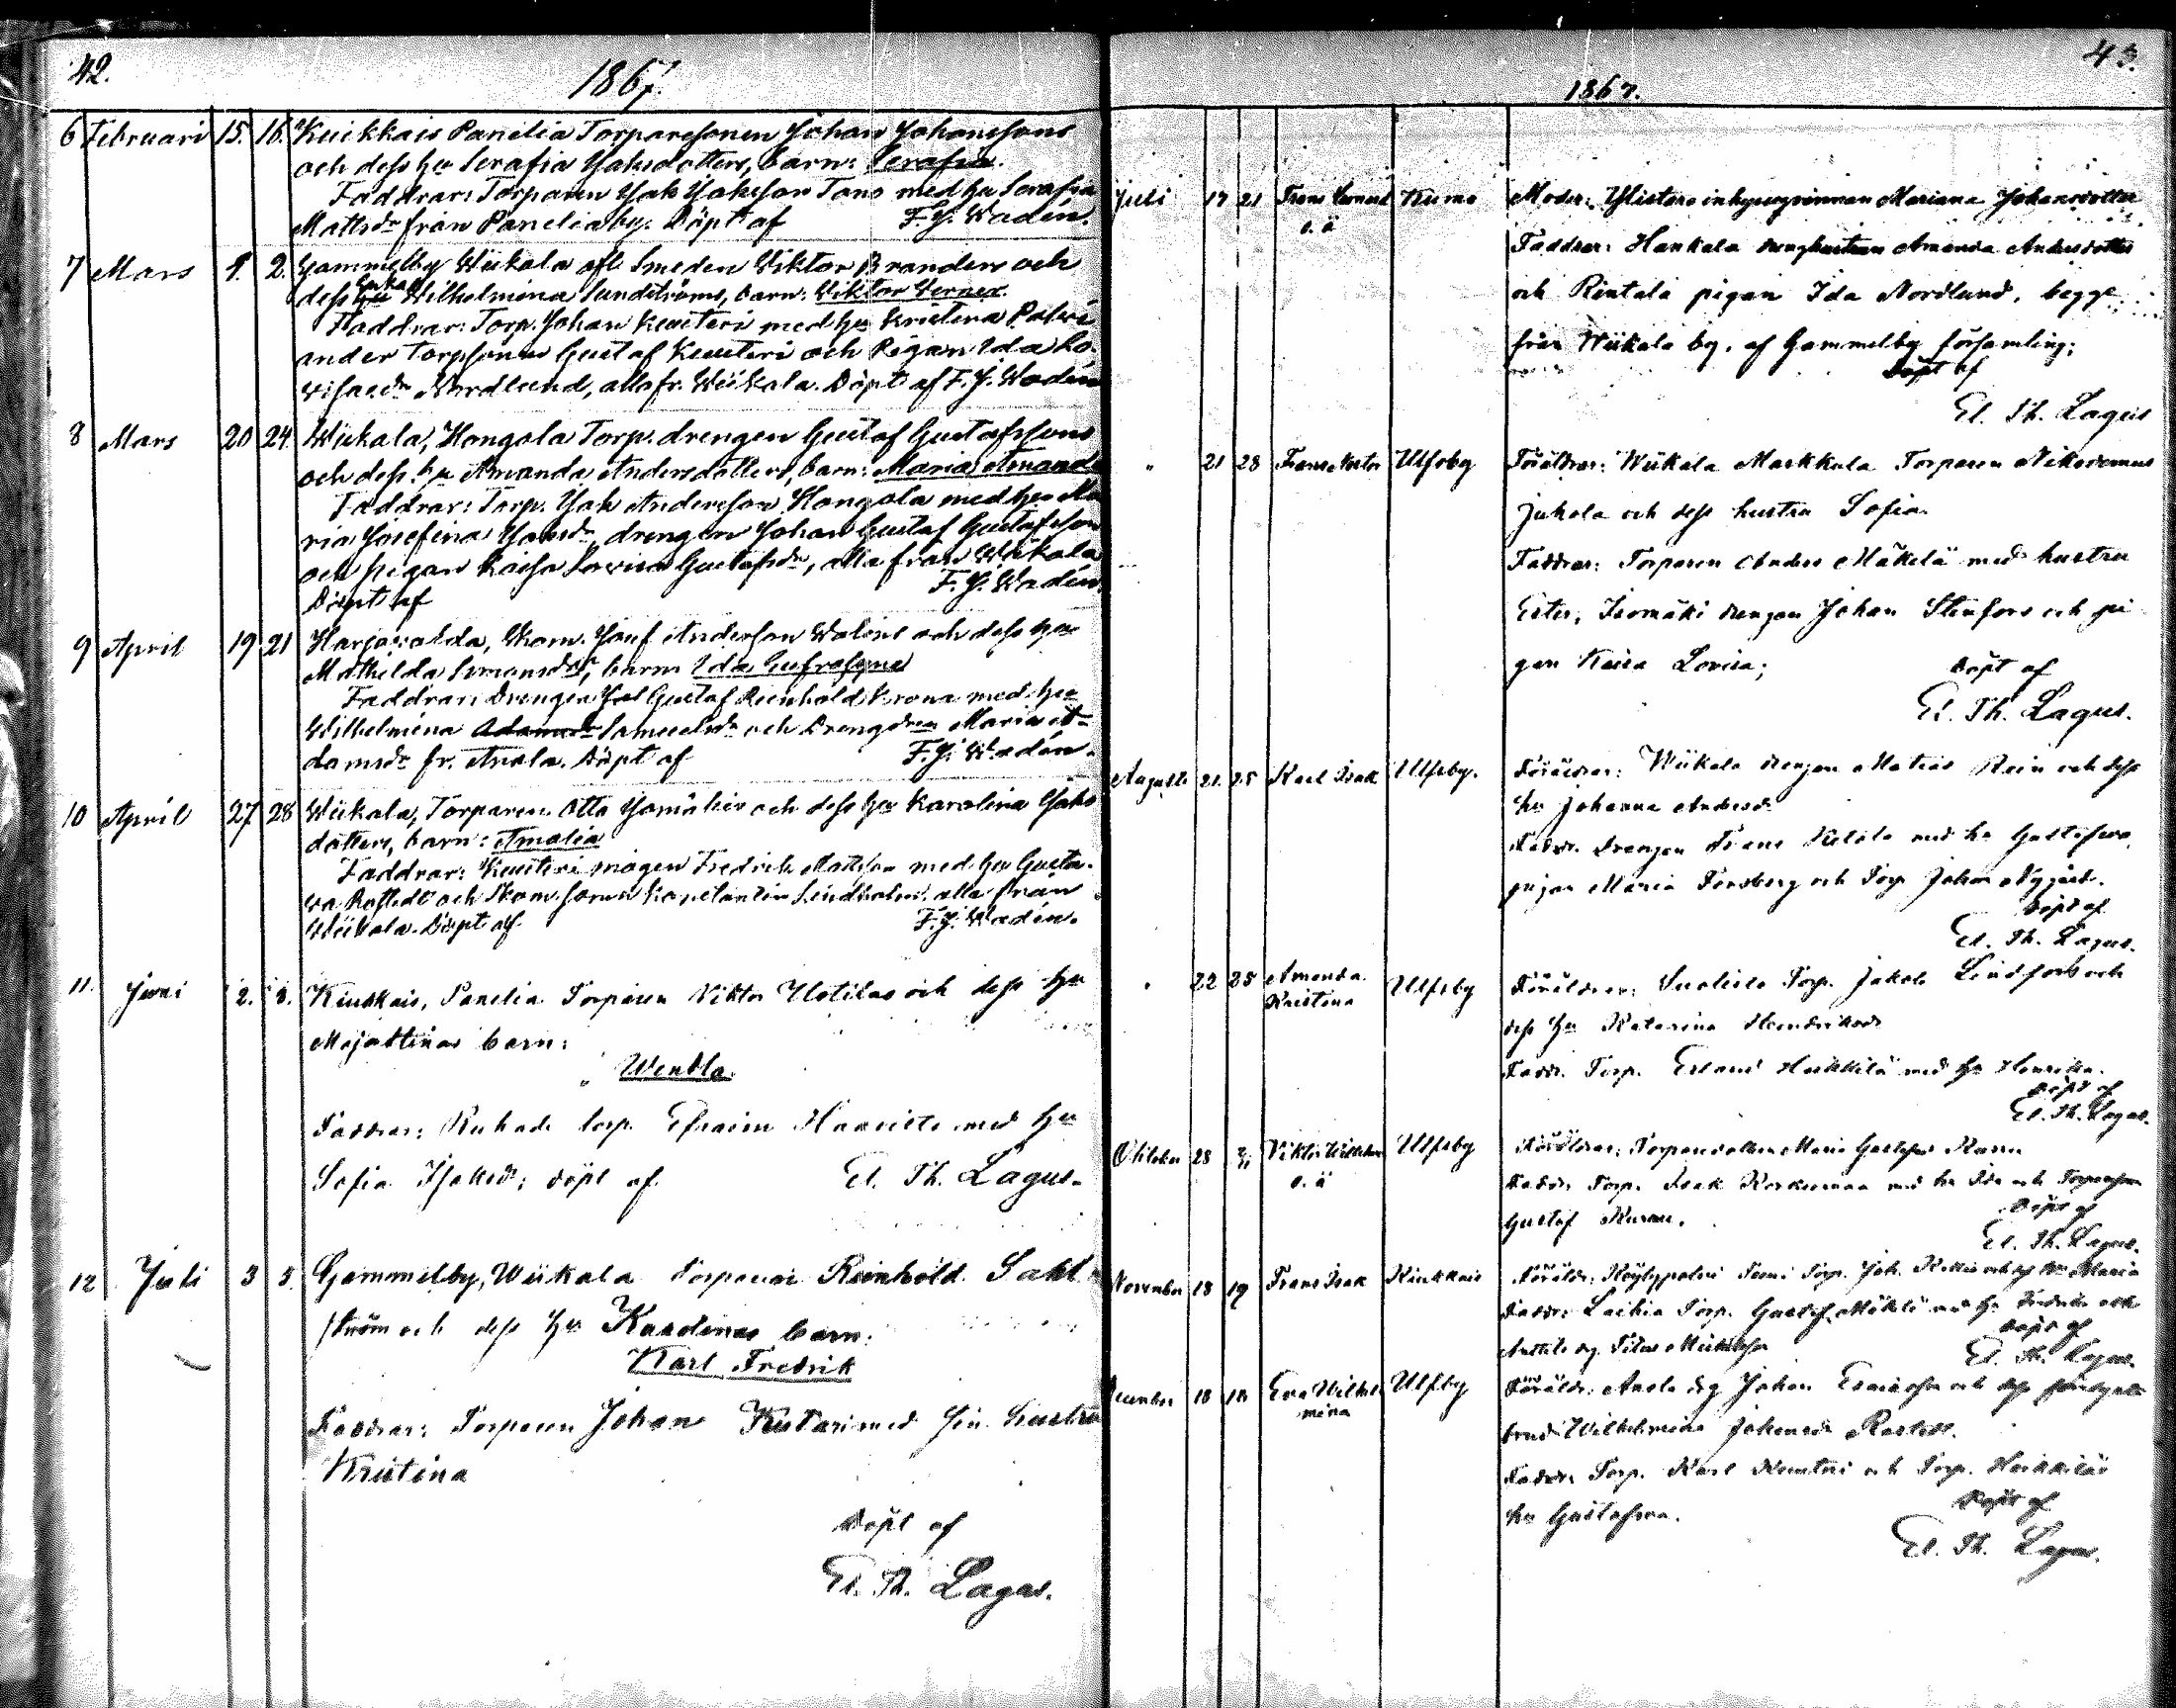 42.
1867.
6 Februari 15. 16. Kiukkais Panelia Torparesonen Johan Johanssons
och dess hu Serafia Jakobsdotters, barn: Serafia.
Faddrar: Torparen Jak Jaksson Tano med hu Serafia
Mattsdr från Panelia by. Döpt af F. J. Wadén.
7 Mars 1. 2. Gammelby Wiikala afl. Smeden Viktor Branders och
dess Enka Wilhelmina Sundströms, barn: Viktor Verner.
Faddrar: Torp. Johan Keuteri med hu Kristina
ander Torpsonen Gustaf Keuteri och Pigan Ida Lo-
visaedr Nordlund, alla fr. Wiikala. Döpt af F. J. Wadén
8 Mars 20 24. Wiikala, Hongola Torp. drengen Gustaf Gustafssons
och dess hu Amanda Andersdotters, barn: Maria Amanda
Faddrar: Torp. Jak Andersson Hongola med hu Ma
ria Josefina Jaksdr, drengen Johan Gustaf Gustafsson
och pigan Kaisa Lovisa Gustafsdr, alla från Wiikala
Döpt af F. J. Wadén.
9 April 19 21 Harjavalda, Skom. Josef Andersson Walins och dess hu
Mathelda Simonsdrs, barn Ida Eufrosyne
Faddrar: Drengen Gustaf Reinhold Krona med hu
Wilhelmina Samuelsdr och Drengdren Maria A-
damsdr fr. Anola. Döpt af F. J. Wadén.
10 April 27 28 Wiikala, Torparen Otto Isomäkis och dess hu Karolina Jaks
dotters, barn: Amalia
Faddrar: Keuteri mågen Fredrik Mattsson med hu Gusta-
va Rostedt och Skom. sonen Konstantin Lindholm, alla från
Wiikala. Döpt af F. J. Wadén.
11. Juni 2. 3. Kiukais, Panelia Torparen Viktor Uotilas och dess hu
Majastinas barn:
Wendla.
Faddrar: Ruhade torp. Efraim Haavisto med hu
Sofia Isaksdr; döpt af El. Th. Lagus.
12 Juli 3 5. Gammelby, Wiikala Torparen Reinhold Sahl
ström och dess hu Karolinas barn:
Karl Fredrik
Faddrar: Torparen Johan Keuteri med sin hustru
Kristina
Döpt af
El. Th. Lagus.
43.
1867.
Juli 17 21 Frans Kumo Moder: Ylistaro inhysqvinnan Mariana Johansdotter
o. ä
Faddrar: Hankala drenghustrun Amanda Andersdotter
och Rintala pigan Ida Nordlund, begge
från Wiikala by, af Gammelby församling;
Döpt af
El. Th. Lagus
" 21 28 Frans Viktor Ulfsby Föräldrar: Wiikala Markkula Torparen Nikodemus
Jukola och dess hustru Sofia
Faddrar: Torparen Anders Mäkelä med hustru
Ester, Isomäki drengen Johan Stenfors och pi
gan Kaisa Lovisa; Döpt af
El. Th. Lagus.
Augusti 21. 25 Karl Isak Ulfsby. Föräldrar: Wiikala drengen Matias Rein och dess
hu Johanna Andersdr
Faddr. Drengen Frans med hu Gustafva
pigan Maria Forsberg och Torp Johan Nygård.
Döpt af
El. Th. Lagus.
" 22 25 Amanda Kristina Ulfsby Föräldrar: Torp. Jakob Lindfors och
dess hu Katarina Hendriksdr
Faddr. Torp. Erland Heikkilä med hu Henrika.
Döpt af
El. Th. Lagus.
Oktober 28 Viktor Wilhelm Ulfsby Föräldrar; Torparedottern Maria
o. ä
Faddr. Torp. Isak med hu Ida och Torparesonen
Gustaf
Döpt af
El. Th. Lagus.
November 18 19 Frans Isak Kiukkais Föräldr: Torp. Joh. och dess hu Maria
Faddr: Laihia Torp. Gustaf Mäkelä med hu Fredrika och
Anttila dreg.
Döpt af
El. Th. Lagus.
December 18 Eva Wilhel
mina Ulfsby Föräldr: Anola drg Johan och dess
brud Wilhelmina Johansdr Rostedt.
Faddr: Torp. Karl Keuteri och Torp. Heikkiläs
hu Gustafva.
Döpt af
El. Th. Lagus.